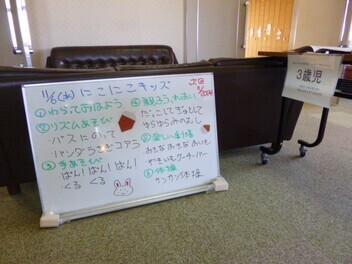 11/6(水)にこにこキッズ
①わらっておはよう
②リズムあそび
バスにのって
パンダうさぎコアラ
③手あそび
ぱん!ぱん!ぱん!
ぐる ぐる
④親子ふれあい
だっこしてぎゅっとして
⑤楽しい手遊び
おおきなおおきなおいも
やきいもグーチーパー
⑥体操
サンサン体操
次回
3歳児